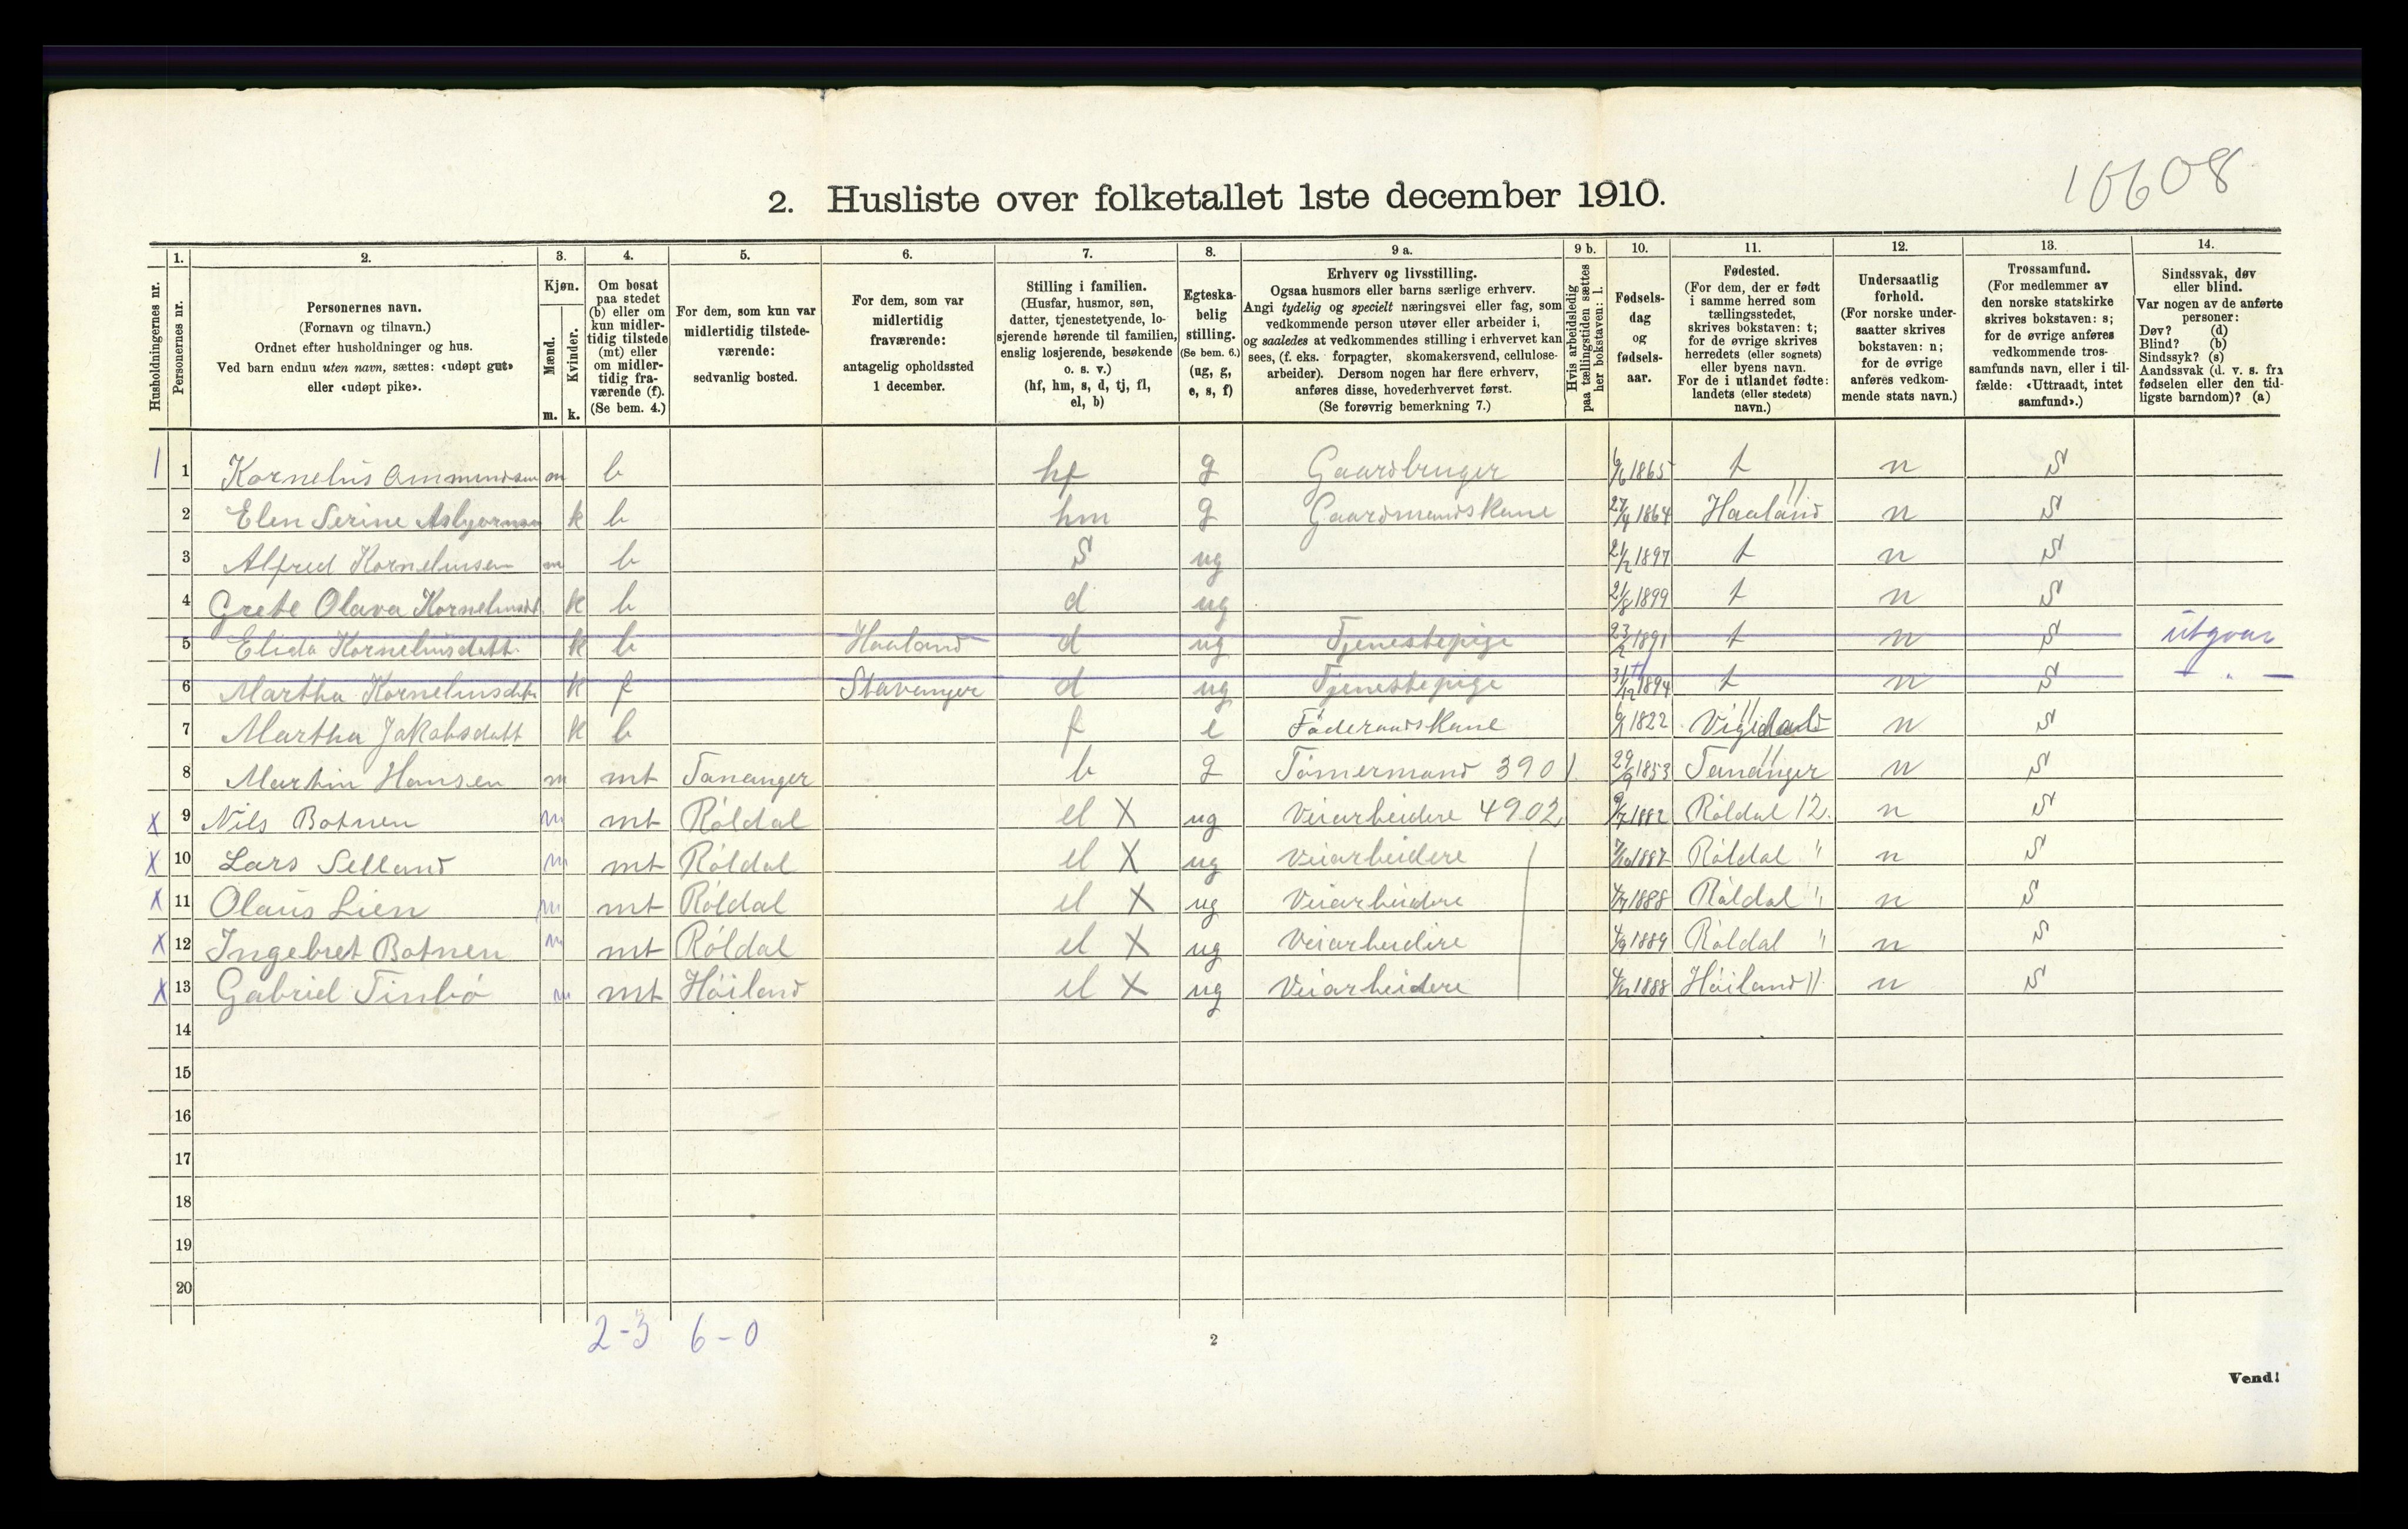 10608
2. Husliste over folketallet 1ste december 1910.
Husholdningernes nr.
1.
Personernes nr.
2.
Personernes navn.
(Fornavn og tilnavn.)
Ordnet efter husholdninger og hus.
Ved barn endnu uten navn, sættes: «udøpt gut»
eller «udøpt pike».
3.
Kjøn.
Mænd.
Kvinder.
m. k.
4.
Om bosat
paa stedet
(b) eller om
kun midler-
tidig tilstede
(mt) eller
om midler-
tidig fra-
værende (f).
(Se bem. 4.)
5.
For dem, som kun var
midlertidig tilstede-
værende:
sedvanlig bosted.
6.
For dem, som var
midlertidig
fraværende:
antagelig opholdssted
1 december.
7.
Stilling i familien.
(Husfar, husmor, søn,
datter, tjenestetyende, lo-
sjerende hørende til familien,
enslig losjerende, besøkende
o. s. v.)
(hf, hm, s, d, tj, fl,
el, b)
8.
Egteska-
belig
stilling.
(Se bem. 6.)
(ug, g,
e, s, f)
9 a.
Erhverv og livsstilling.
Ogsaa husmors eller barns særlige erhverv.
Angi tydelig og specielt næringsvei eller fag, som
vedkommende person utøver eller arbeider i,
og saaledes at vedkommendes stilling i erhvervet kan
sees, (f. eks. forpagter, skomakersvend, cellulose-
arbeider). Dersom nogen har flere erhverv,
anføres disse, hovederhvervet først.
(Se forøvrig bemerkning 7.)
9 b.
Hvis arbeidsledig
paa tællingstiden sættes
her bokstaven: l.
10.
Fødsels-
dag
og
fødsels-
aar.
11.
Fødested.
(For dem, der er født
i samme herred som
tællingsstedet,
skrives bokstaven: t;
for de øvrige skrives
herredets (eller sognets)
eller byens navn.
For de i utlandet fødte:
landets (eller stedets)
navn.)
12.
Undersaatlig
forhold.
(For norske under-
saatter skrives
bokstaven: n;
for de øvrige
anføres vedkom-
mende stats navn.)
13.
Trossamfund.
(For medlemmer av
den norske statskirke
skrives bokstaven: s;
for de øvrige anføres
vedkommende tros-
samfunds navn, eller i til-
fælde: «Uttraadt, intet
samfund».)
14.
Sindssvak, døv
eller blind.
Var nogen av de anførte
personer:
Døv? (d)
Blind? (b)
Sindssyk? (s)
Aandssvak (d. v. s. fra
fødselen eller den tid-
ligste barndom)? (a)
1 1 Kornelius Ommundsen m b hf g Gaardbruger 1865 t n S
2 Elen Serine Asbjornsen k b hm g Gaardmandskone 27/4 1864 Haaland 11 n S
3 Alfred Korneliusen m b S ug 21/2 1897 t n S
4 Grete Olava Korneliusdt k b d ug 21/8 1899 t n S
5 Elida Korneliusdatt k b Haaland d ug Tjenestepige 23/2 1891 t n S utgaar
6 Martha Korneliusdatr k f Stavanger d ug Tjenestepige 31/12 1894 t n S - " -
7 Martha Jakobsdatt k b f e Føderaadskone 1822 11 n S
8 Martin Hansen m mt Tananger b g Tømermand 390 29/9 1853 Tananger 11 n S
X 9 Nils Botnen m mt Røldal el X ug Veiarbeidere 4902 1882 Røldal 12. n S
X 10 Lars Selland m mt Røldal el X ug Veiarbeidere 1887 Røldal " n S
X 11 Olaus Lien m mt Røldal el X ug Veiarbeidere 1888 Røldal " n S
X 12 Ingebret Botnen m mt Røldal el X ug Veiarbeidere 1889 Røldal " n S
X 13 Gabriel Tinbø m mt Høiland el X ug Veiarbeidere 1888 Høiland 11 n S
14
15
16
17
18
19
20
2-3 6-0
2
Vend!